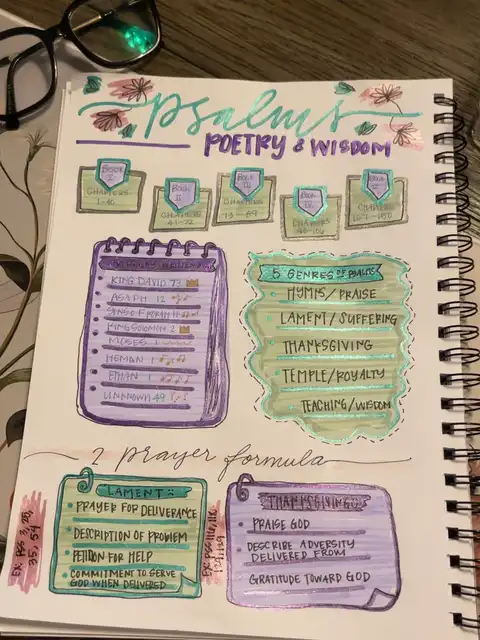 psalms
POETRY & WISDOM
BOOK
I
CHAPTERS
1-41
BOOK
II
CHAPTERS
42-72
BOOK
III
CHAPTERS
73-89
BOOK
IV
CHAPTERS
90-106
BOOK
V
CHAPTERS
107-150
KING DAVID 73
ASAPH 12
SONS OF KORAH 11
KING SOLOMON 2
MOSES 1
HEMAN 1
ETHAN 1
UNKNOWN 49
5 GENRES OF PSALMS
HYMNS/PRAISE
LAMENT/SUFFERING
THANKSGIVING
TEMPLE/ROYALTY
TEACHING/WISDOM
2 prayer formula
EX: PSS 3, 28,
35, 54
LAMENT :(
PRAYER FOR DELIVERANCE
DESCRIPTION OF PROBLEM
PETITION FOR HELP
COMMITMENT TO SERVE
GOD WHEN DELIVERED
EX: PSS
THANKSGIVING
PRAISE GOD
DESCRIBE ADVERSITY
DELIVERED FROM
GRATITUDE TOWARD GOD